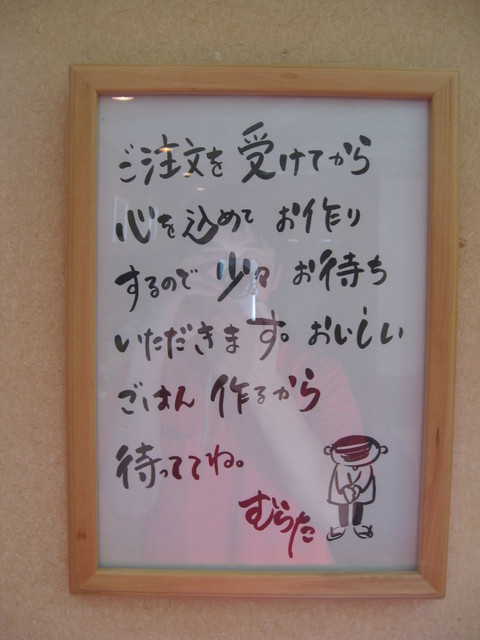 ご注文を受けてから
心を込めて お作り
するので 少々 お待ち
いただきます。おいしい
ごはん 作るから
待っててね。
むらた